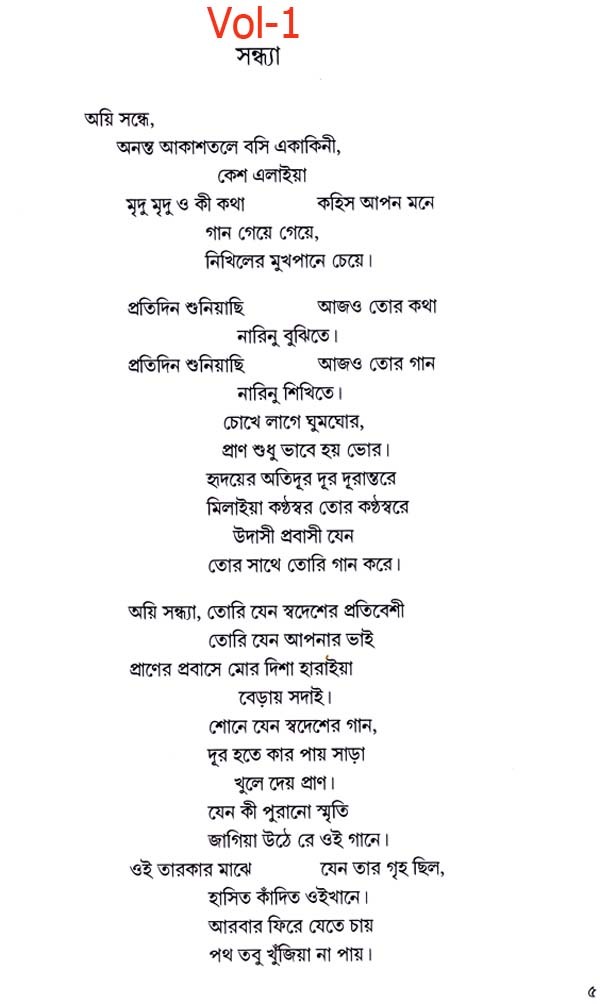 Vol-1
সন্ধ্যা
অয়ি সন্ধে,
অনন্ত আকাশতলে বসি একাকিনী,
কেশ এলাইয়া
মৃদু মৃদু ও কী কথা কহিস আপন মনে
গান গেয়ে গেয়ে,
নিখিলের মুখপানে চেয়ে।
প্রতিদিন শুনিয়াছি আজও তোর কথা
নারিনু বুঝিতে।
প্রতিদিন শুনিয়াছি আজও তোর গান
নারিনু শিখিতে।
চোখে লাগে ঘুমঘোর,
প্রাণ শুধু ভাবে হয় ভোর।
হৃদয়ের অতিদূর দূর দূরান্তরে
মিলাইয়া কণ্ঠস্বর তোর কণ্ঠস্বরে
উদাসী প্রবাসী যেন
তোর সাথে তোরি গান করে।
অয়ি সন্ধ্যা, তোরি যেন স্বদেশের প্রতিবেশী
তোরি যেন আপনার ভাই
প্রাণের প্রবাসে মোর দিশা হারাইয়া
বেড়ায় সদাই।
শোনে যেন স্বদেশের গান,
দূর হতে কার পায় সাড়া
খুলে দেয় প্রাণ।
যেন কী পুরানো স্মৃতি
জাগিয়া উঠে রে ওই গানে।
ওই তারকার মাঝে যেন তার গৃহ ছিল,
হাসিত কাঁদিত ওইখানে।
আরবার ফিরে যেতে চায়
পথ তবু খুঁজিয়া না পায়।
৫